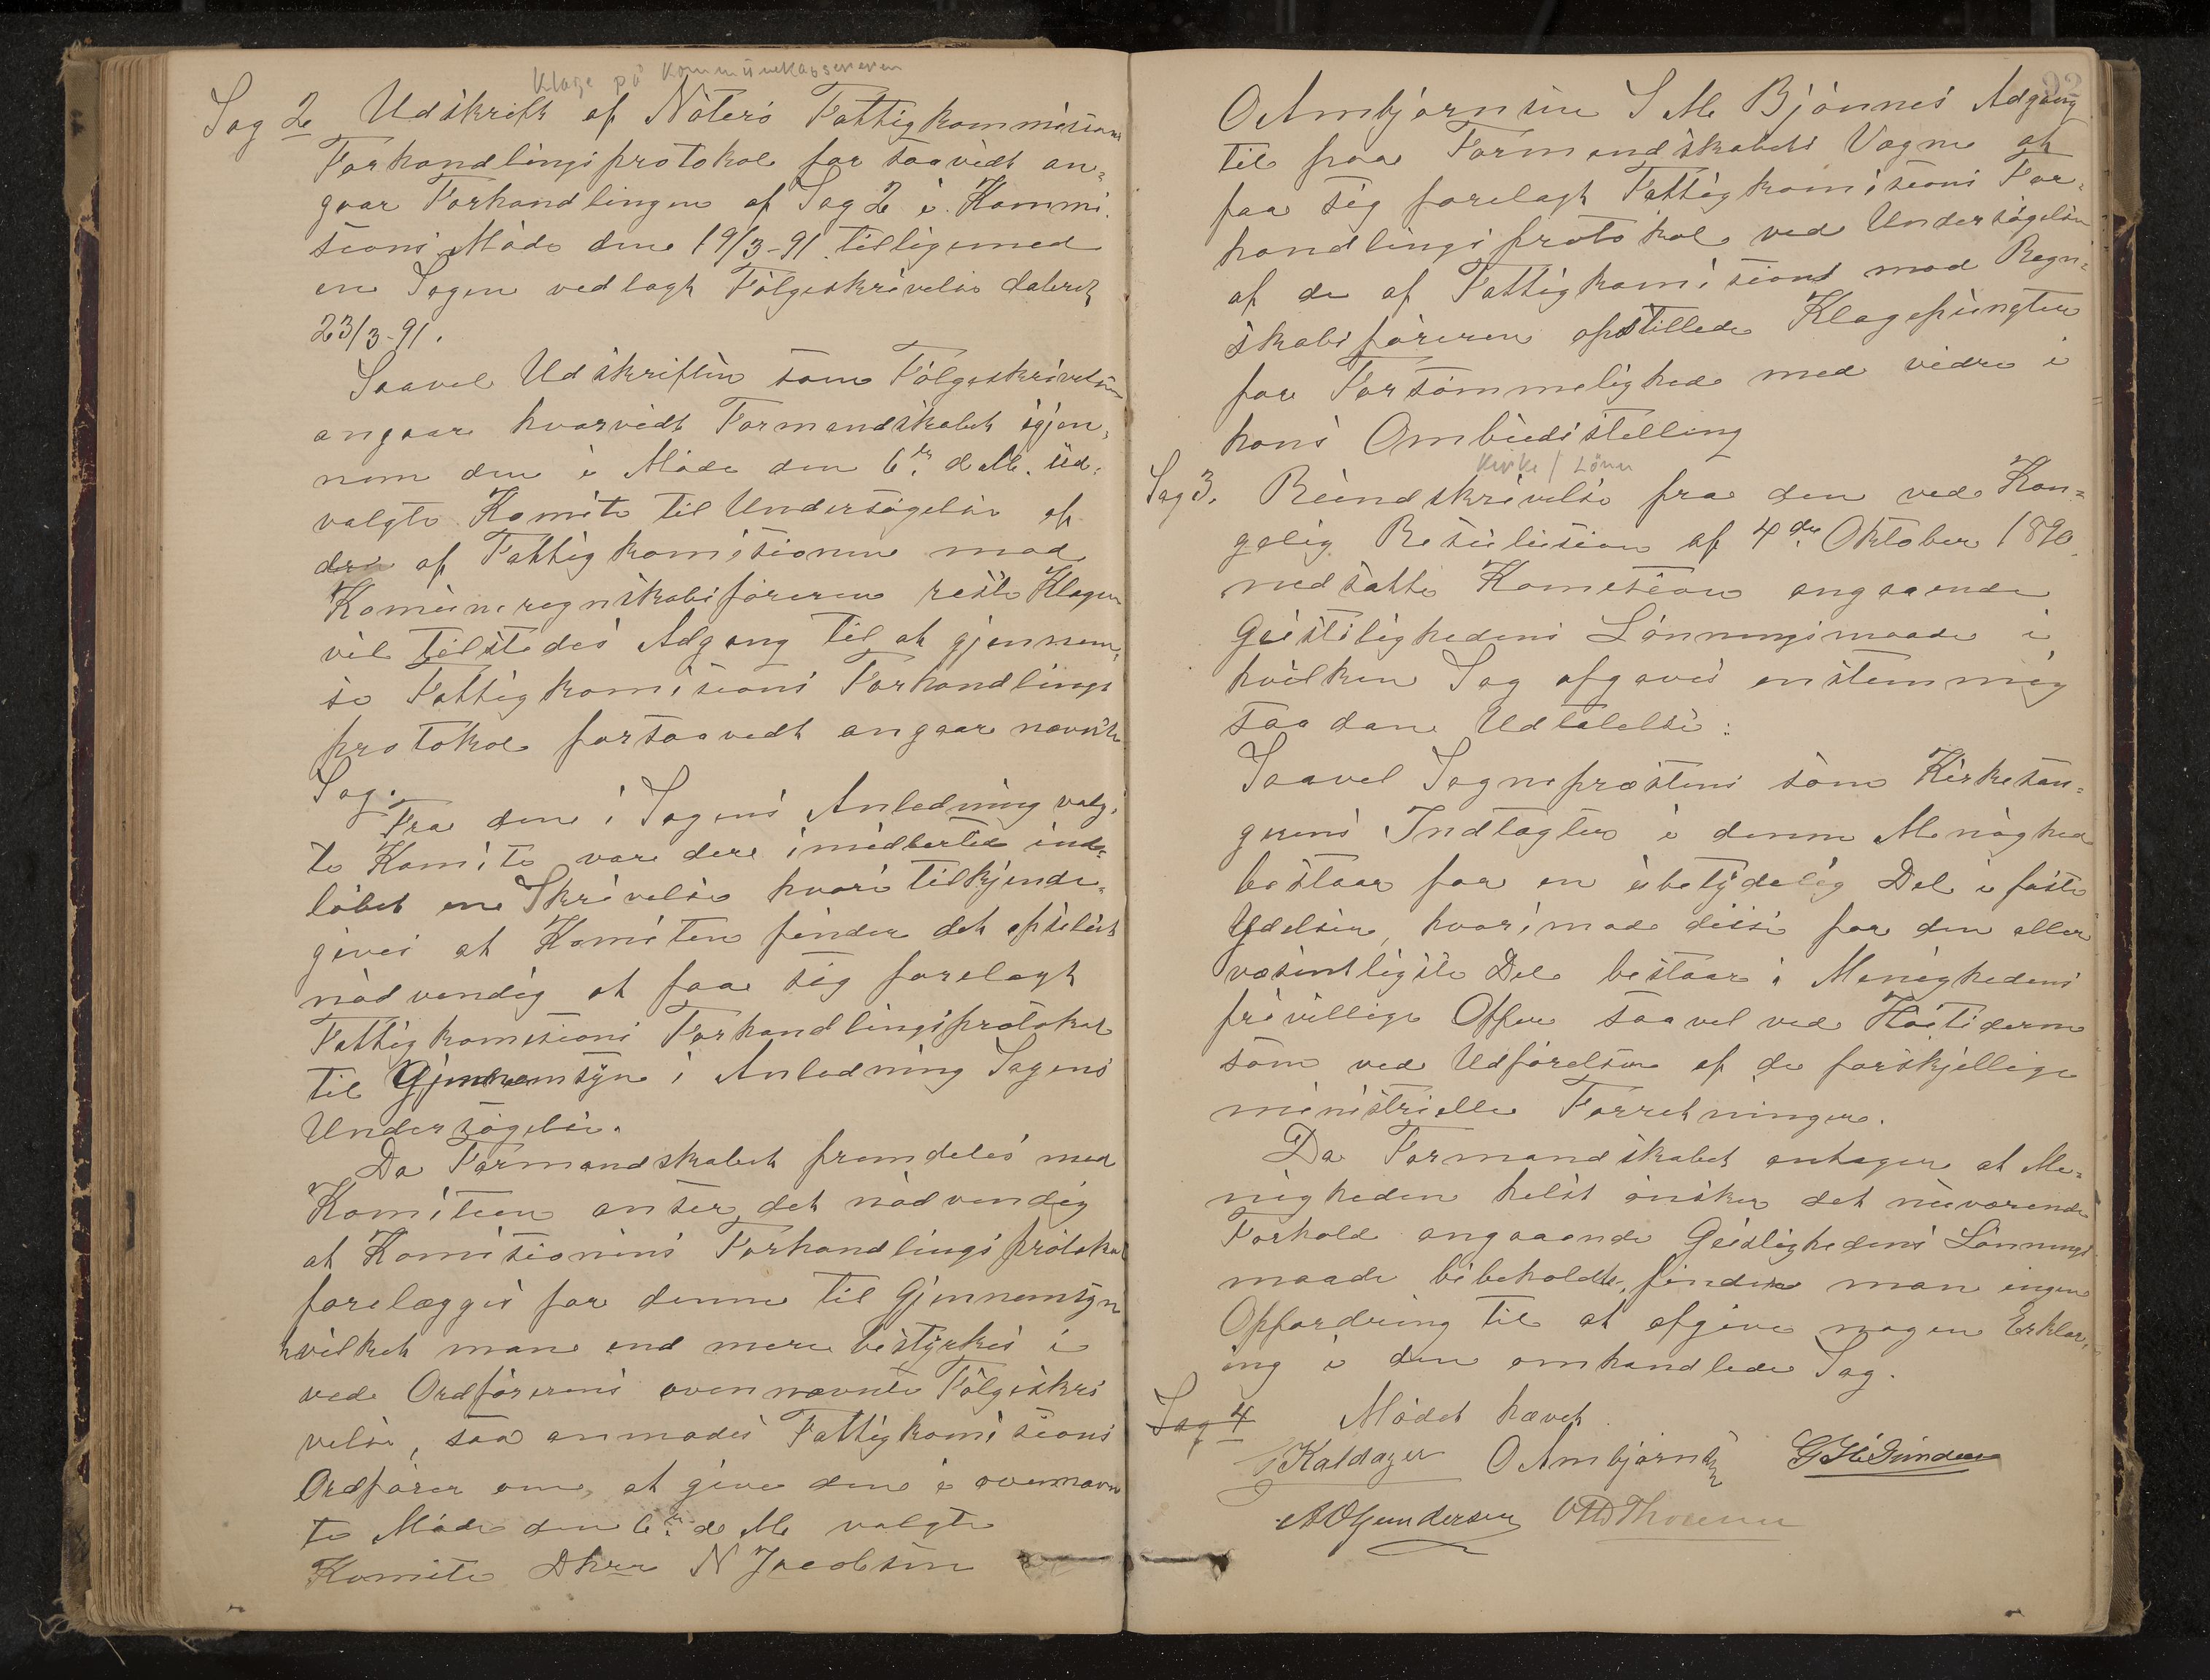 Klage på Kommünekassereren
Sag 2 Udskrift af Nöterö Fattigkommisions
Forhandlingsprotokol for saavidt an=
gaar Forhandlingen af Sag 2 i Kommi
sions Möde den 19/3-91. tilligemed
en Sagen vedlagt Fölgeskrivelse dateret
23/3-91.
Saavel Udskriften som Fölgeskrivelsen
angaar hvorvidt Formandskabet igjen=
nem den i Möde den 6te d. M. üd=
valgte Komite til Undersögelse af
den af Fattigkomisionen mod
Komüneregnskabsföreren reiste Klage
vil tilstedes Adgang til at gjennem=
se Fattigkomisions Forhandlings
protokol forsaavidt angaar nævnte
Sag.
Fra den i Sagens Anledning valg=
te Komite var der imidlertid ind=
löbet en Skrivelse hvori tilkjende=
gives at Komiten finder det absolut
nödvendig at faa sig forelagt
Fattigkomisions Forhandlingsprotokol
til Gjennemsyn i Anledning Sagens
Undersögelse.
Da Formandskabet fremdeles med
Komiteen anser det nödvendig
at Komisionens Forhandlingsprotokol
forelægges for denne til Gjennemsyn
hvilket man end mere bestyrkes i
ved Ordförerens ovennævnte Fölgeskri
velse, saa anmodes Fattigkomisions
Ordförer om, at give den i ovennævn
te Möde den 6te d. M. valgte
Komite Dhrr N Jacobsen
92
O Ambjörnsen S M. Bjönnes Adgang
til paa Formandskabets Vegne at
faa sig forelagt Fattigkomisions For=
handlingsprotokol ved Undersögelsen
af de af Fattigkomisions mod Regn=
skabsföreren opstillede Klagepüngter
for Forsömmelighed med videre i
hans Ombüdsstilling
Kirke / Lönn
Sag 3. Ründskrivelse fra den ved Kon=
gelig Resülüsion af 4de Oktober 1890
nedsatte Komision angaaende
Geistlighedens Lönningsmaade i
hvilken Sag afgaves enstemmig
saadan Udtalelse:
Saavel Sognepræstens som Kirkesan=
gerens Indtægter i denne Menighed
bestaar for en übetydelig Del i faste
Ydelser, hvorimod disse for den aller
væsentligste Del bestaar i Menighedens
frivillige Offer saavel ved Höitiderne
som ved Udförelsen af de forskjellige
ministrielle Forretninger.
Da Formandskabet antager at Me=
nigheden helst önsker det nüværende
Forhold angaaende Geistlighedens Lönnings
maade bibeholdt, finder man ingen
Opfordring til at afgive nogen Erklær
ing i den omhandlede Sag.
Sag 4 Mödet hævet.
Kaldager O Ambjörnsen
A O Gundersen